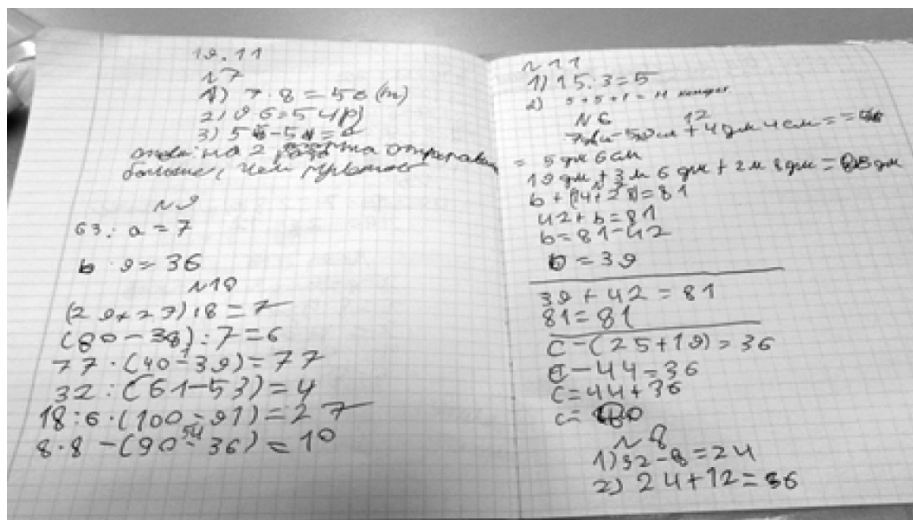 19.11
№7
1) 7·8=56(т)
2) 9·6=54(р)
3) 56-54=2
на 2
больше, чем
№9
63:a=7
b·9=36
№10
(29+27):8=7
(80-38):7=6
77·(40-39)=77
32:(61-53)=4
18:6·(100-91)=27
8·8-(90-36)=10
54
№11
1) 15:3=5
2) 5+5+1=11
№6
12
-50см+4дм 4см=
=5дм 6см
19дм+3м 6дм+2м 8дм=
b+(14+28)=81
42+b=81
b=81-42
b=39
39+42=81
81=81
c-(25+19)=36
c-44=36
c=44+36
c=80
№8
1) 32-8=24
2) 24+12=36